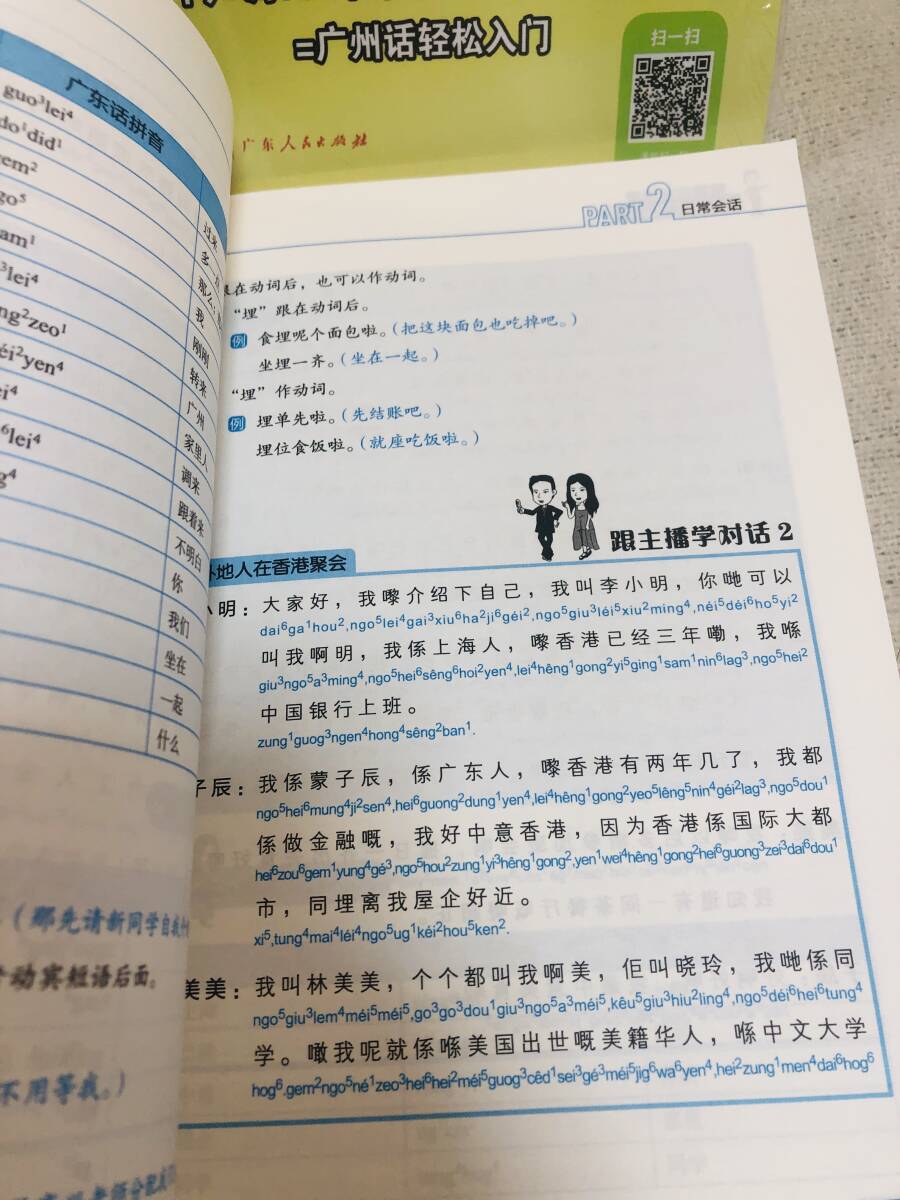 =广州话轻松入门
扫一扫
广东人民出版社
广东话拼音
guo³lei⁴
do¹did¹
过来
那么
我
刚刚
转来
广州
家里人
调来
跟着来
不明白
你
我们
坐在
一起
什么
(那先请新同学自我
动宾短语后面。
不用等我。)
PART 2 日常会话
在动词后，也可以作动词。
“埋”跟在动词后。
例 食埋呢个面包啦。(把这块面包也吃掉吧。)
坐埋一齐。(坐在一起。)
“埋”作动词。
例 埋单先啦。(先结账吧。)
埋位食饭啦。(就座吃饭啦。)
跟主播学对话 2
外地人在香港聚会
小明：大家好，我嚟介绍下自己，我叫李小明，你哋可以
dai⁶ga¹hou²,ngo⁵lei⁴gai³xiu⁶ha²ji⁶géi²,ngo⁵giu³léi⁵xiu²ming⁴,néi⁵déi⁶ho⁵yi²
叫我啊明，我係上海人，嚟香港已经三年嘞，我喺
giu³ngo⁵a³ming⁴,ngo⁵hei⁶sêng⁶hoi²yen⁴,lei⁴hêng¹gong²yi⁵ging¹sam¹nin⁶lag³,ngo⁵hei²
中国银行上班。
zung¹guog³ngen⁴hong⁴sêng²ban¹.
子辰：我係蒙子辰，係广东人，嚟香港有两年几了，我都
ngo⁵hei⁶mung⁴ji²sen⁴,hei⁶guong²dung¹yen⁴,lei⁴hêng¹gong²yeo⁵lêng⁵nin⁴géi²lag³,ngo⁵dou¹
係做金融嘅，我好中意香港，因为香港係国际大都
hei⁶zou⁶gem¹yung⁴gé³,ngo⁵hou²zung¹yi³hêng¹gong²,yen¹wei⁴hêng¹gong²hei⁶guong³zei³dai⁶dou¹
市，同埋离我屋企好近。
xi⁵,tung⁴mai⁴léi⁴ngo⁵ug¹kéi²hou⁵ken².
美美：我叫林美美，个个都叫我啊美，佢叫晓玲，我哋係同
ngo⁵giu³lem⁴méi⁵méi⁵,go³go³dou¹giu³ngo⁵a³méi⁵,kêu⁵giu³hiu²ling⁴,ngo⁵déi⁶hei⁶tung⁴
学。噉我呢就係喺美国出世嘅美籍华人，喺中文大学
hog⁶.gem²ngo⁵né¹zeo³hei⁶hei²méi⁵guog³cêd¹sei³gé³méi⁵jig⁶wa⁶yen⁴,hei²zung¹men⁴dai⁶hog⁶